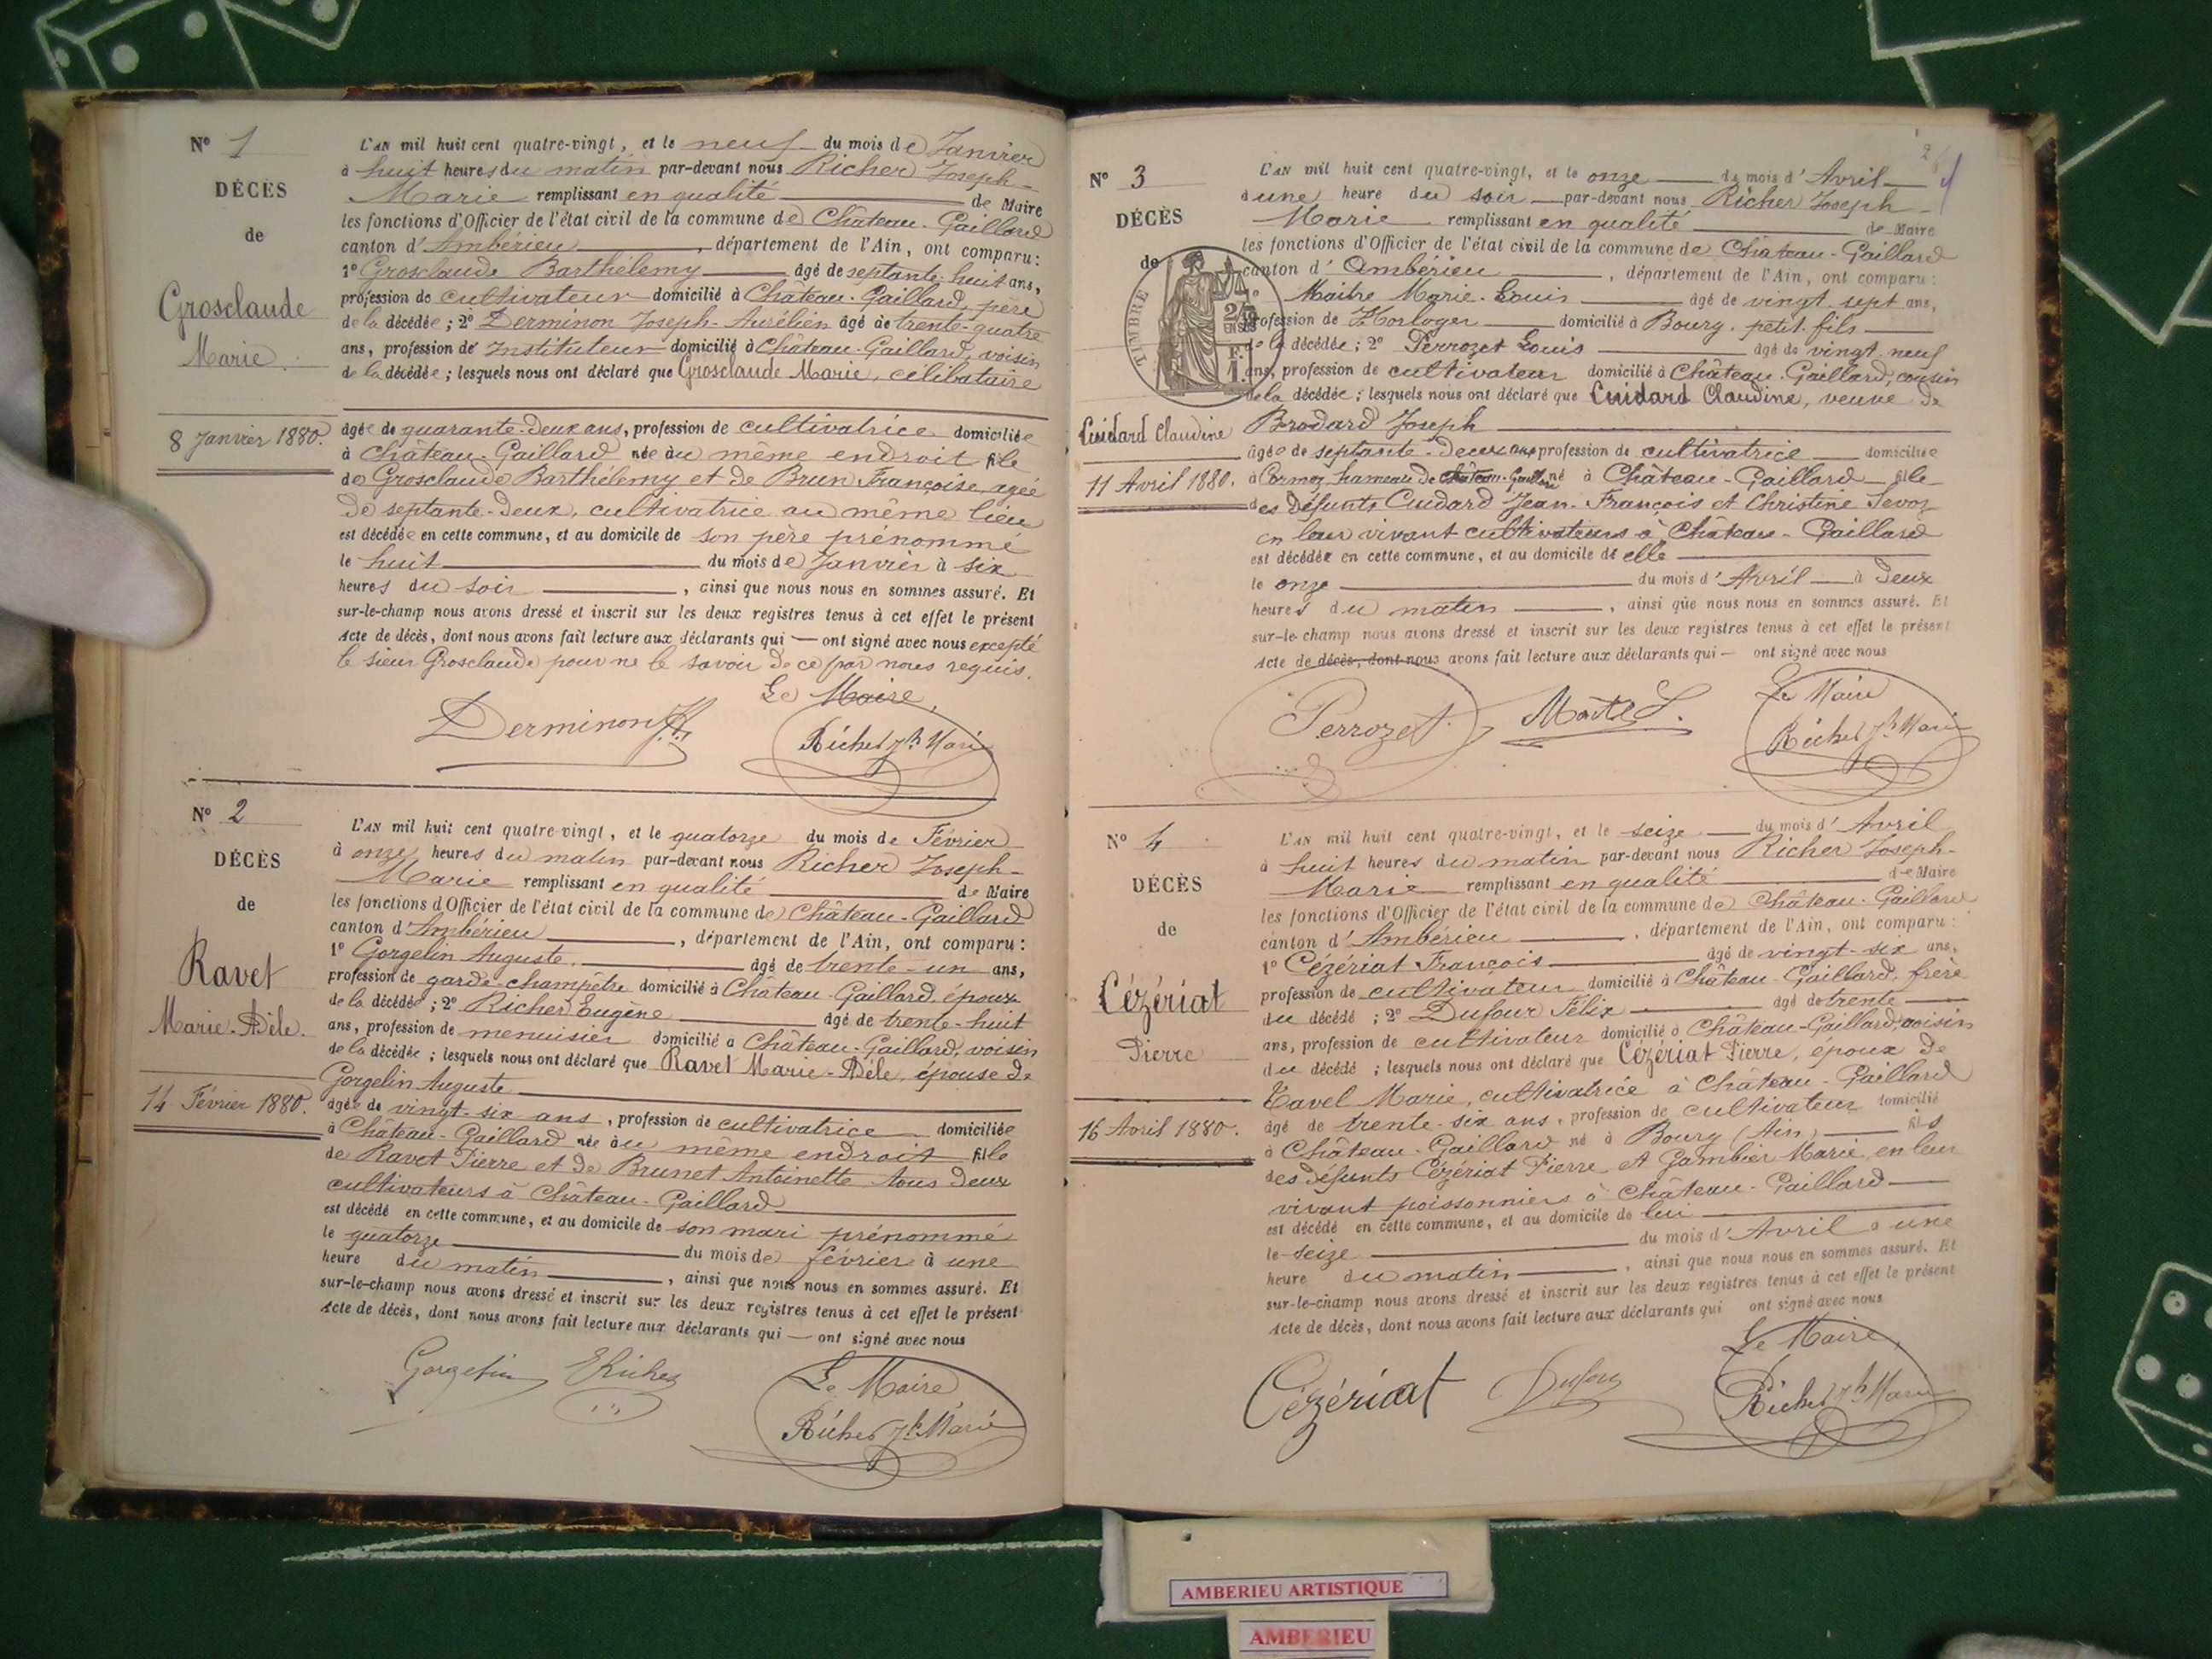 N° 1
DÉCÈS
de
Grosclaude
Marie
8 Janvier 1880.
L'AN mil huit cent quatre-vingt, et le neuf du mois de Janvier
à huit heures du matin par-devant nous Richer Joseph-
Marie remplissant en qualité de Maire
les fonctions d'Officier de l'état civil de la commune de Château-Gaillard
canton d'Ambérieu, département de l'Ain, ont comparu:
1° Grosclaude Barthélemy âgé de septante-huit ans,
profession de cultivateur domicilié à Château-Gaillard, père
de la décédée; 2° Derminon Joseph-Aurélien âgé de trente-quatre
ans, profession de Instituteur domicilié à Château-Gaillard, voisin
de la décédée; lesquels nous ont déclaré que Grosclaude Marie, célibataire
âgée de quarante-deux ans, profession de cultivatrice domiciliée
à Château-Gaillard née au même endroit fille
de Grosclaude Barthélemy et de Brun Françoise, agée
de septante-deux, cultivatrice au même lieu
est décédée en cette commune, et au domicile de son père prénommé
le huit du mois de Janvier à six
heures du soir, ainsi que nous nous en sommes assuré. Et
sur-le-champ nous avons dressé et inscrit sur les deux registres tenus à cet effet le présent
Acte de décès, dont nous avons fait lecture aux déclarants qui — ont signé avec nous excepté
le sieur Grosclaude pour ne le savoir de ce par nous requis.
Le Maire,
Derminon
Richer Jh Marie
N° 2
DÉCÈS
de
Ravet
Marie-Adèle.
14 Février 1880.
L'AN mil huit cent quatre-vingt, et le quatorze du mois de Février
à onze heures du matin par-devant nous Richer Joseph-
Marie remplissant en qualité de Maire
les fonctions d'Officier de l'état civil de la commune de Château-Gaillard
canton d'Ambérieu, département de l'Ain, ont comparu:
1° Gorgelin Auguste. âgé de trente-un ans,
profession de garde-champêtre domicilié à Château-Gaillard, époux
de la décédée; 2° Richer Eugène âgé de trente-huit
ans, profession de menuisier domicilié à Château-Gaillard, voisin
de la décédée; lesquels nous ont déclaré que Ravet Marie-Adèle, épouse de
Gorgelin Auguste
âgée de vingt-six ans, profession de cultivatrice domiciliée
à Château-Gaillard née au même endroit fille
de Ravet Pierre et de Brunet Antoinette tous deux
cultivateurs à Château-Gaillard
est décédé en cette commune, et au domicile de son mari prénommé
le quatorze du mois de février à une
heure du matin, ainsi que nous nous en sommes assuré. Et
sur-le-champ nous avons dressé et inscrit sur les deux registres tenus à cet effet le présent
Acte de décès, dont nous avons fait lecture aux déclarants qui — ont signé avec nous
Gorgelin ERicher
Le Maire
Richer Jh Marie
2
N° 3
DÉCÈS
de
TIMBRE
Cuidard Claudine
11 Avril 1880.
L'AN mil huit cent quatre-vingt, et le onze du mois d'Avril
à une heure du soir par-devant nous Richer Joseph-
Marie remplissant en qualité de Maire
les fonctions d'Officier de l'état civil de la commune de Château-Gaillard
canton d'Ambérieu, département de l'Ain, ont comparu:
Maitre Marie-Louis âgé de vingt sept ans,
profession de Horloger domicilié à Bourg, petit-fils
de la décédée; 2° Perrozet Louis âgé de vingt neuf
ans, profession de cultivateur domicilié à Château-Gaillard, cousin
de la décédée; lesquels nous ont déclaré que Cuidard Claudine, veuve de
Brodard Joseph
âgée de septante-deux ans profession de cultivatrice domiciliée
à Cormoz, hameau de Château-Gaillard né à Château-Gaillard fille
des défunts Cuidard Jean-François et Christine Sevoz
en leur vivant cultivateurs à Château-Gaillard
est décédée en cette commune, et au domicile de elle
le onze du mois d'Avril à deux
heures du matin, ainsi que nous nous en sommes assuré. Et
sur-le-champ nous avons dressé et inscrit sur les deux registres tenus à cet effet le présent
Acte de décès, dont nous avons fait lecture aux déclarants qui — ont signé avec nous
Perrozet
Le Maire
Richer Jh Marie
N° 4
DÉCÈS
de
Cézériat
Pierre
16 Avril 1880.
L'AN mil huit cent quatre-vingt, et le seize du mois d'Avril
à huit heures du matin par-devant nous Richer Joseph-
Marie remplissant en qualité de Maire
les fonctions d'Officier de l'état civil de la commune de Château-Gaillard
canton d'Ambérieu, département de l'Ain, ont comparu:
1° Cézériat François âgé de vingt-six ans,
profession de cultivateur domicilié à Château-Gaillard, frère
du décédé; 2° Dufour Félix âgé de trente
ans, profession de cultivateur domicilié à Château-Gaillard, voisin
du décédé; lesquels nous ont déclaré que Cézériat Pierre, époux de
Ravel Marie, cultivatrice à Château-Gaillard
âgé de trente-six ans, profession de cultivateur domicilié
à Château-Gaillard né à Bourg (Ain) fils
des défunts Cézériat Pierre et Gambier Marie, en leur
vivant poissonniers à Château-Gaillard
est décédé en cette commune, et au domicile de lui
le seize du mois d'Avril à une
heure du matin, ainsi que nous nous en sommes assuré. Et
sur-le-champ nous avons dressé et inscrit sur les deux registres tenus à cet effet le présent
Acte de décès, dont nous avons fait lecture aux déclarants qui ont signé avec nous
Le Maire,
Cézériat Dufour
Richer Jh Marie
AMBERIEU ARTISTIQUE
AMBERIEU